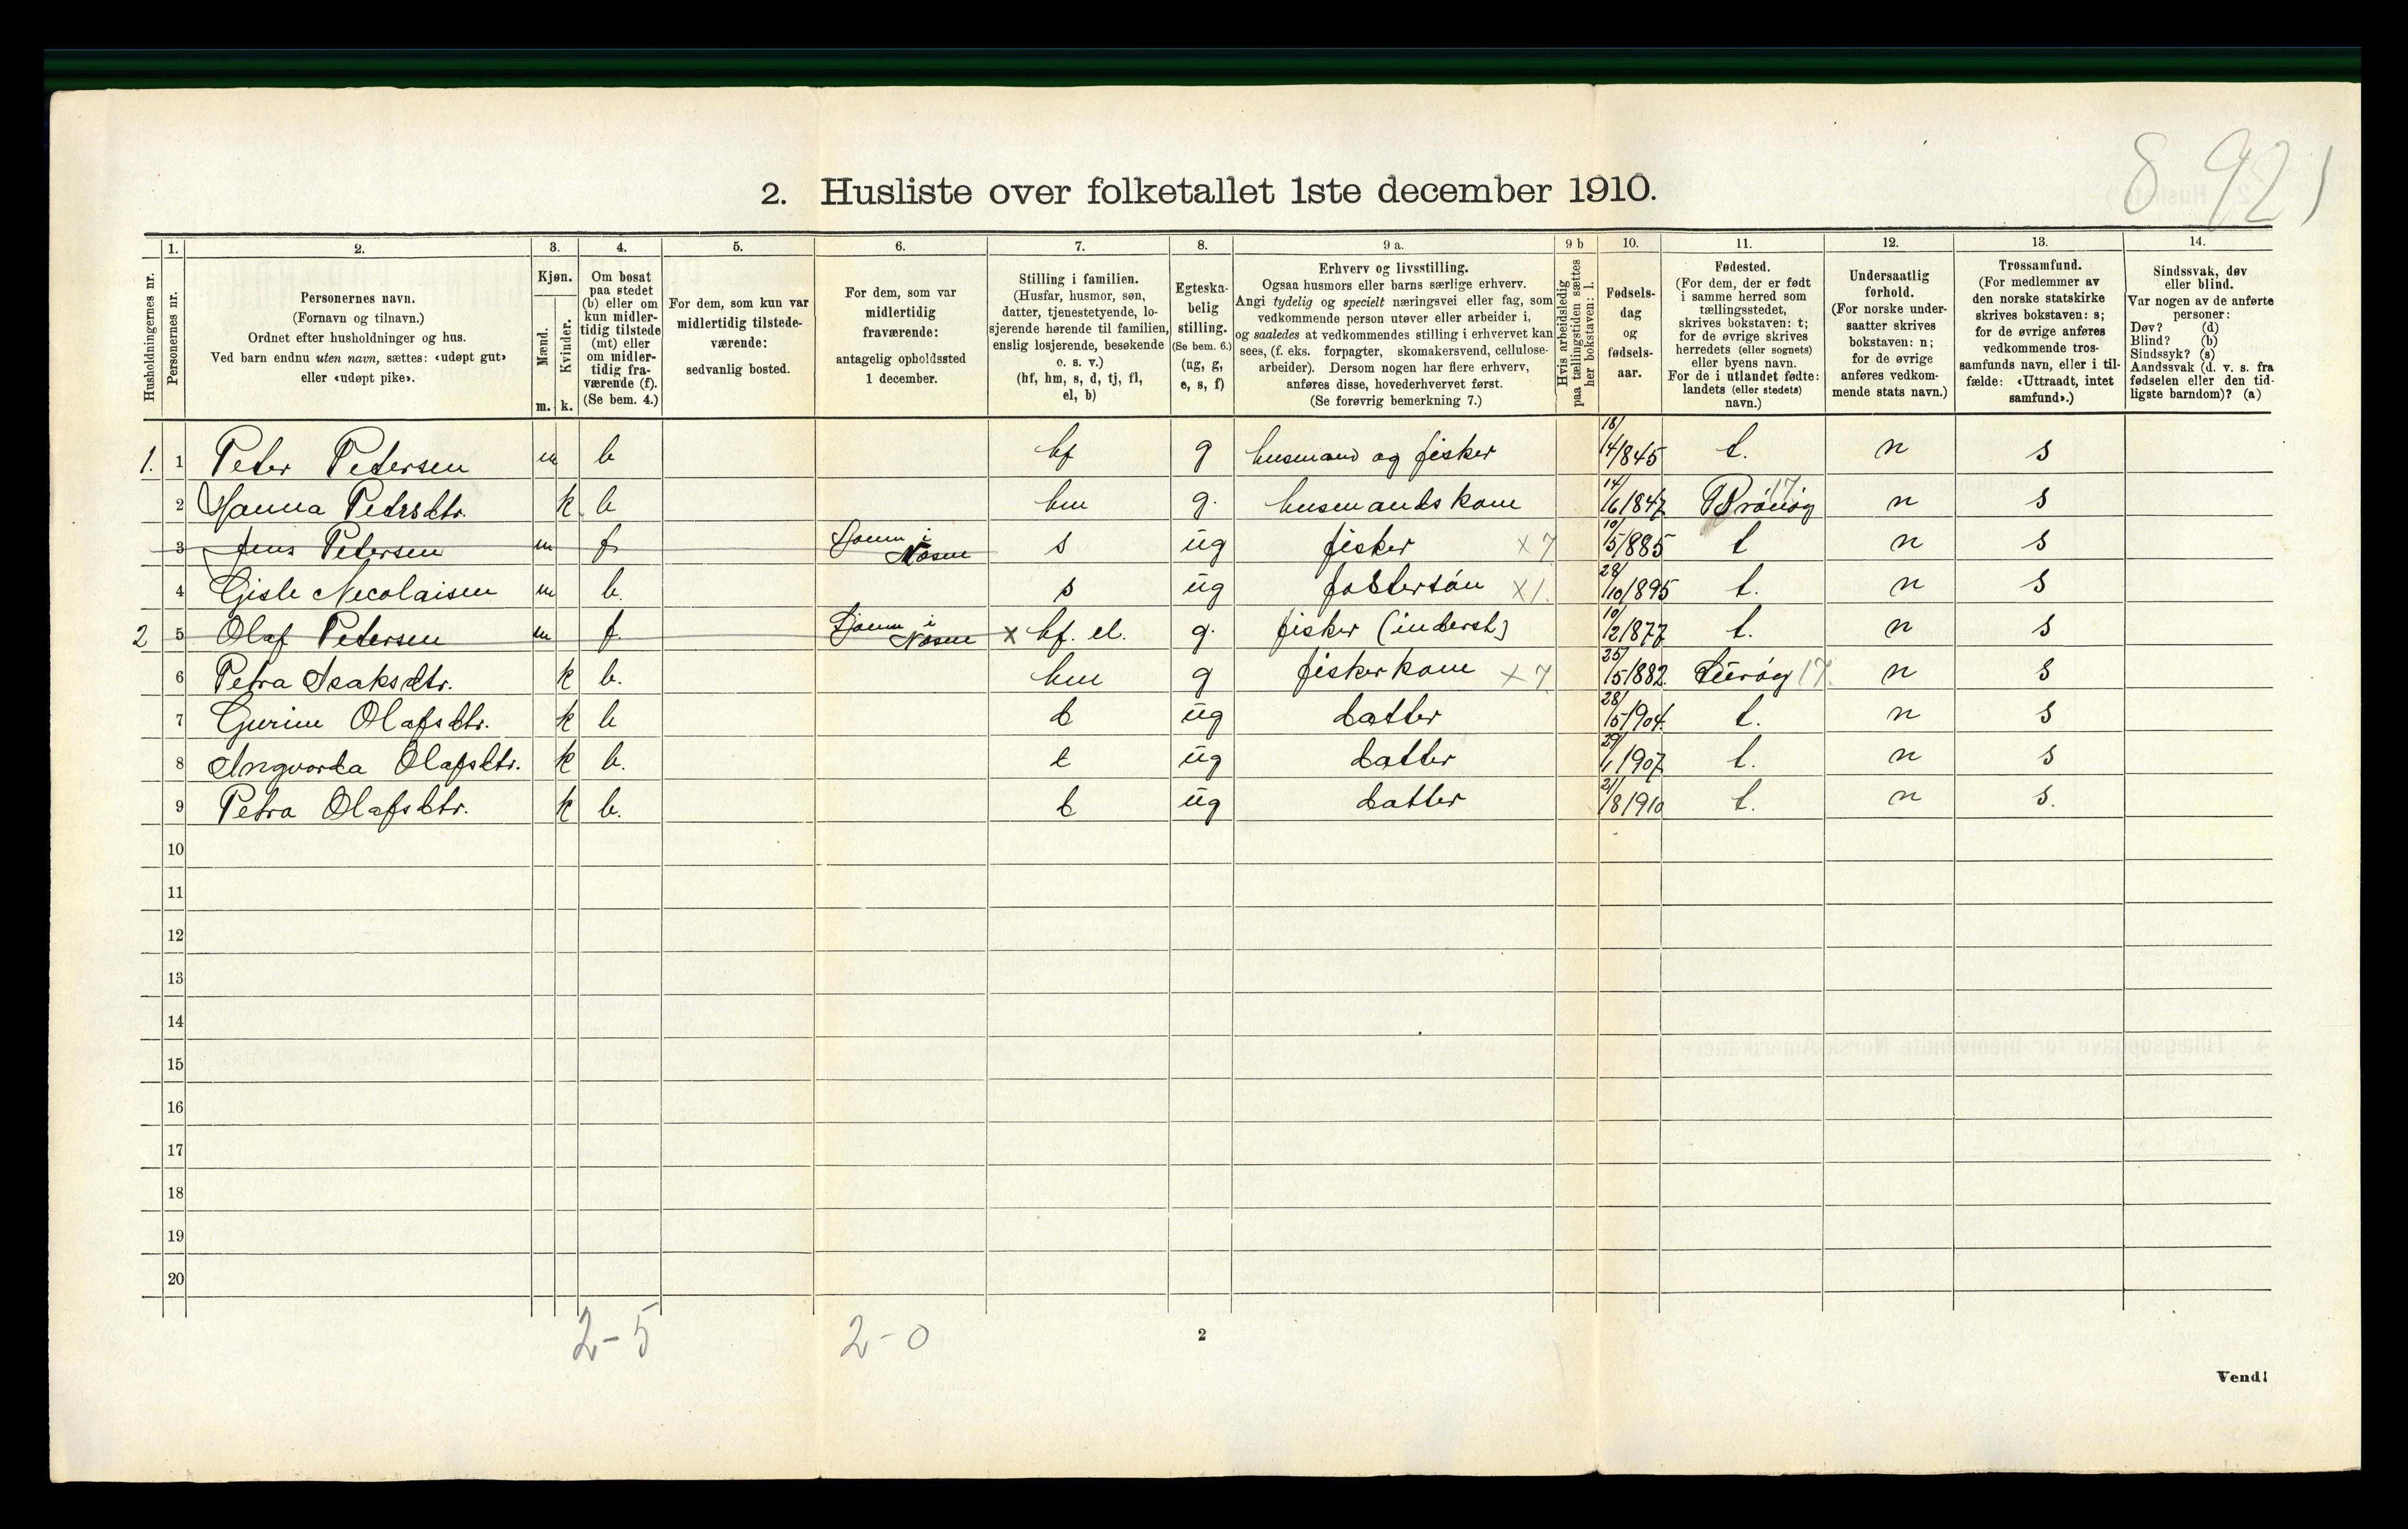 8 921
2. Husliste over folketallet 1ste december 1910.
Husholdningernes nr.
1. Personernes nr.
2. Personernes navn. (Fornavn og tilnavn.) Ordnet efter husholdninger og hus. Ved barn endnu uten navn, sættes: «udøpt gut» eller «udøpt pike».
3. Kjøn. Mænd. m. Kvinder. k.
4. Om bosat paa stedet (b) eller om kun midlertidig tilstede (mt) eller om midlertidig fraværende (f). (Se bem. 4.)
5. For dem, som kun var midlertidig tilstedeværende: sedvanlig bosted.
6. For dem, som var midlertidig fraværende: antagelig opholdssted 1 december.
7. Stilling i familien. (Husfar, husmor, søn, datter, tjenestetyende, losjerende hørende til familien, enslig losjerende, besøkende o. s. v.) (hf, hm, s, d, tj, fl, el, b)
8. Egteskabelig stilling. (Se bem. 6.) (ug, g, e, s, f)
9 a. Erhverv og livsstilling. Ogsaa husmors eller barns særlige erhverv. Angi tydelig og specielt næringsvei eller fag, som vedkommende person utøver eller arbeider i, og saaledes at vedkommendes stilling i erhvervet kan sees, (f. eks. forpagter, skomakersvend, cellulosearbeider). Dersom nogen har flere erhverv, anføres disse, hovederhvervet først. (Se forøvrig bemerkning 7.)
9 b Hvis arbeidsledig paa tællingstiden sættes her bokstaven: l.
10. Fødselsdag og fødselsaar.
11. Fødested. (For dem, der er født i samme herred som tællingsstedet, skrives bokstaven: t; for de øvrige skrives herredets (eller sognets) eller byens navn. For de i utlandet fødte: landets (eller stedets) navn.)
12. Undersaatlig forhold. (For norske undersaatter skrives bokstaven: n; for de øvrige anføres vedkommende stats navn.)
13. Trossamfund. (For medlemmer av den norske statskirke skrives bokstaven: s; for de øvrige anføres vedkommende trossamfunds navn, eller i tilfælde: «Uttraadt, intet samfund».)
14. Sindssvak, døv eller blind. Var nogen av de anførte personer: Døv? (d) Blind? (b) Sindssyk? (s) Aandssvak (d. v. s. fra fødselen eller den tidligste barndom)? (a)
1. 1 Peter Petersen m b hf g husmand og fisker 18/4/845 t. n s
2 Hanna Petersdtr. k b hm g. husmandskone 14/6/1847 Brønøy 17 n s
3 Jens Petersen m f i Næsne s ug fisker x 7 10/5/885 t n s
4 Gisle Necolaisen m b. s ug fostersøn x 1. 28/10/895 t. n s
2 5 Olaf Petersen m f i Næsne x hf. el. g. fisker (inderst) 10/2/877 t. n s
6 Petra Isaksdtr. k b. hm g fiskerkone x 7 25/5/1882. Lurøy 17. n s
7 Gurine Olafsdtr. k b d ug datter 28/5/1904. t. n s
8 Ingvarda Olafsdtr. k b. d ug datter 29/1/1907 t. n s
9 Petra Olafsdtr. k b. d ug datter 21/8/1910 t. n s.
10
11
12
13
14
15
16
17
18
19
20
2-5 2-0
2
Vend!